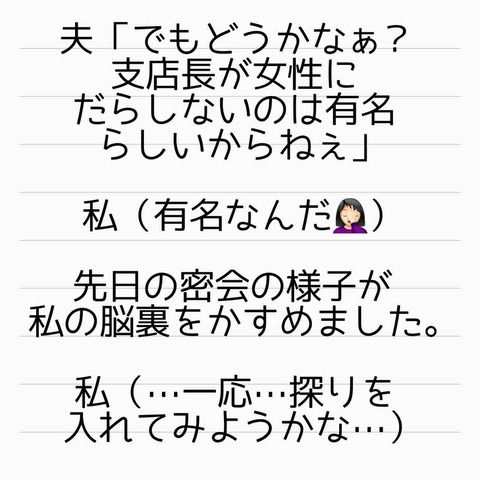 夫「でもどうかなぁ？
支店長が女性に
だらしないのは有名
らしいからねぇ」
私（有名なんだ🤦🏻‍♀️）
先日の密会の様子が
私の脳裏をかすめました。
私（…一応…探りを
入れてみようかな…）